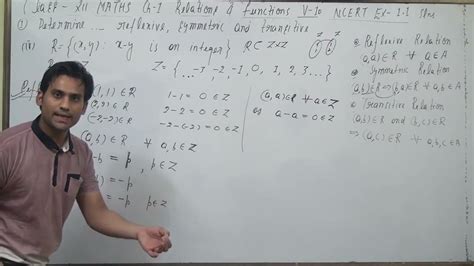 CBSE - XII MATHS Ch-1 Relations & functions V-10 NCERT Ex-1.1
① Determine ... reflexive, Symmetric and transitive
(iv) R = {(x, y): x-y is an integer} R⊂Z×Z
Z = {... -3, -2, -1, 0, 1, 2, 3...}
1) ∈ R 1-1 = 0 ∈ Z
(2, 2) ∈ R 2-2 = 0 ∈ Z
(-2, -2) ∈ R -2-(-2) = 0 ∈ Z
(a, b) ∈ R ∀ a, b ∈ Z
-b = p, p ∈ Z
b) = -p
= -p p ∈ Z
(a, a) ∈ R ∀ a ∈ Z
as a-a = 0 ∈ Z
Reflexive Relation
(a, a) ∈ R ∀ a ∈ A
Symmetric Relation
(a, b) ∈ R ⇒ (b, a) ∈ R
Transitive Relation
(a, b) ∈ R and (b, c) ∈ R
⇒ (a, c) ∈ R